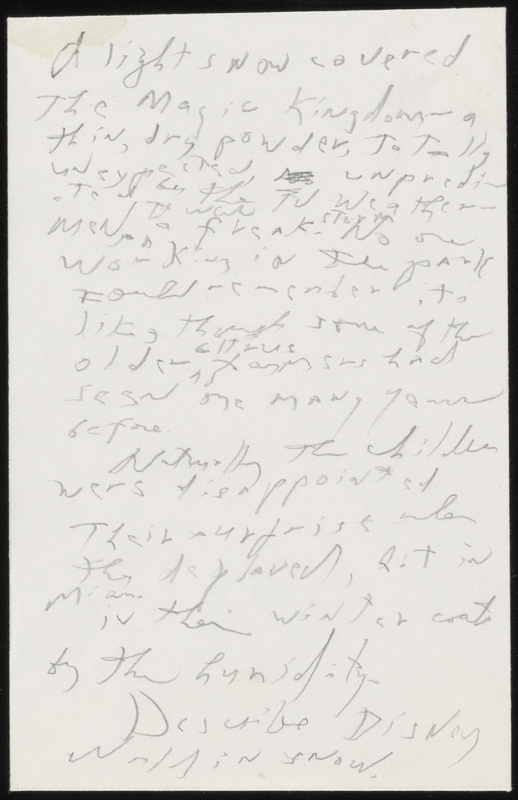 A light snow covered
The Magic Kingdom — a
thin, dry powder, Totally
unexpected, unpredic-
ted by the TV weather-
men. It was a freak storm. No one
working in the park
could remember its
like, though some of the
older citrus farmers had
seen one many years
before.
Naturally the children
were disappointed
Their surprise when
they deplaned, hit in
Miami
in their winter coats
by the humidity.
Describe Disney
World in snow.